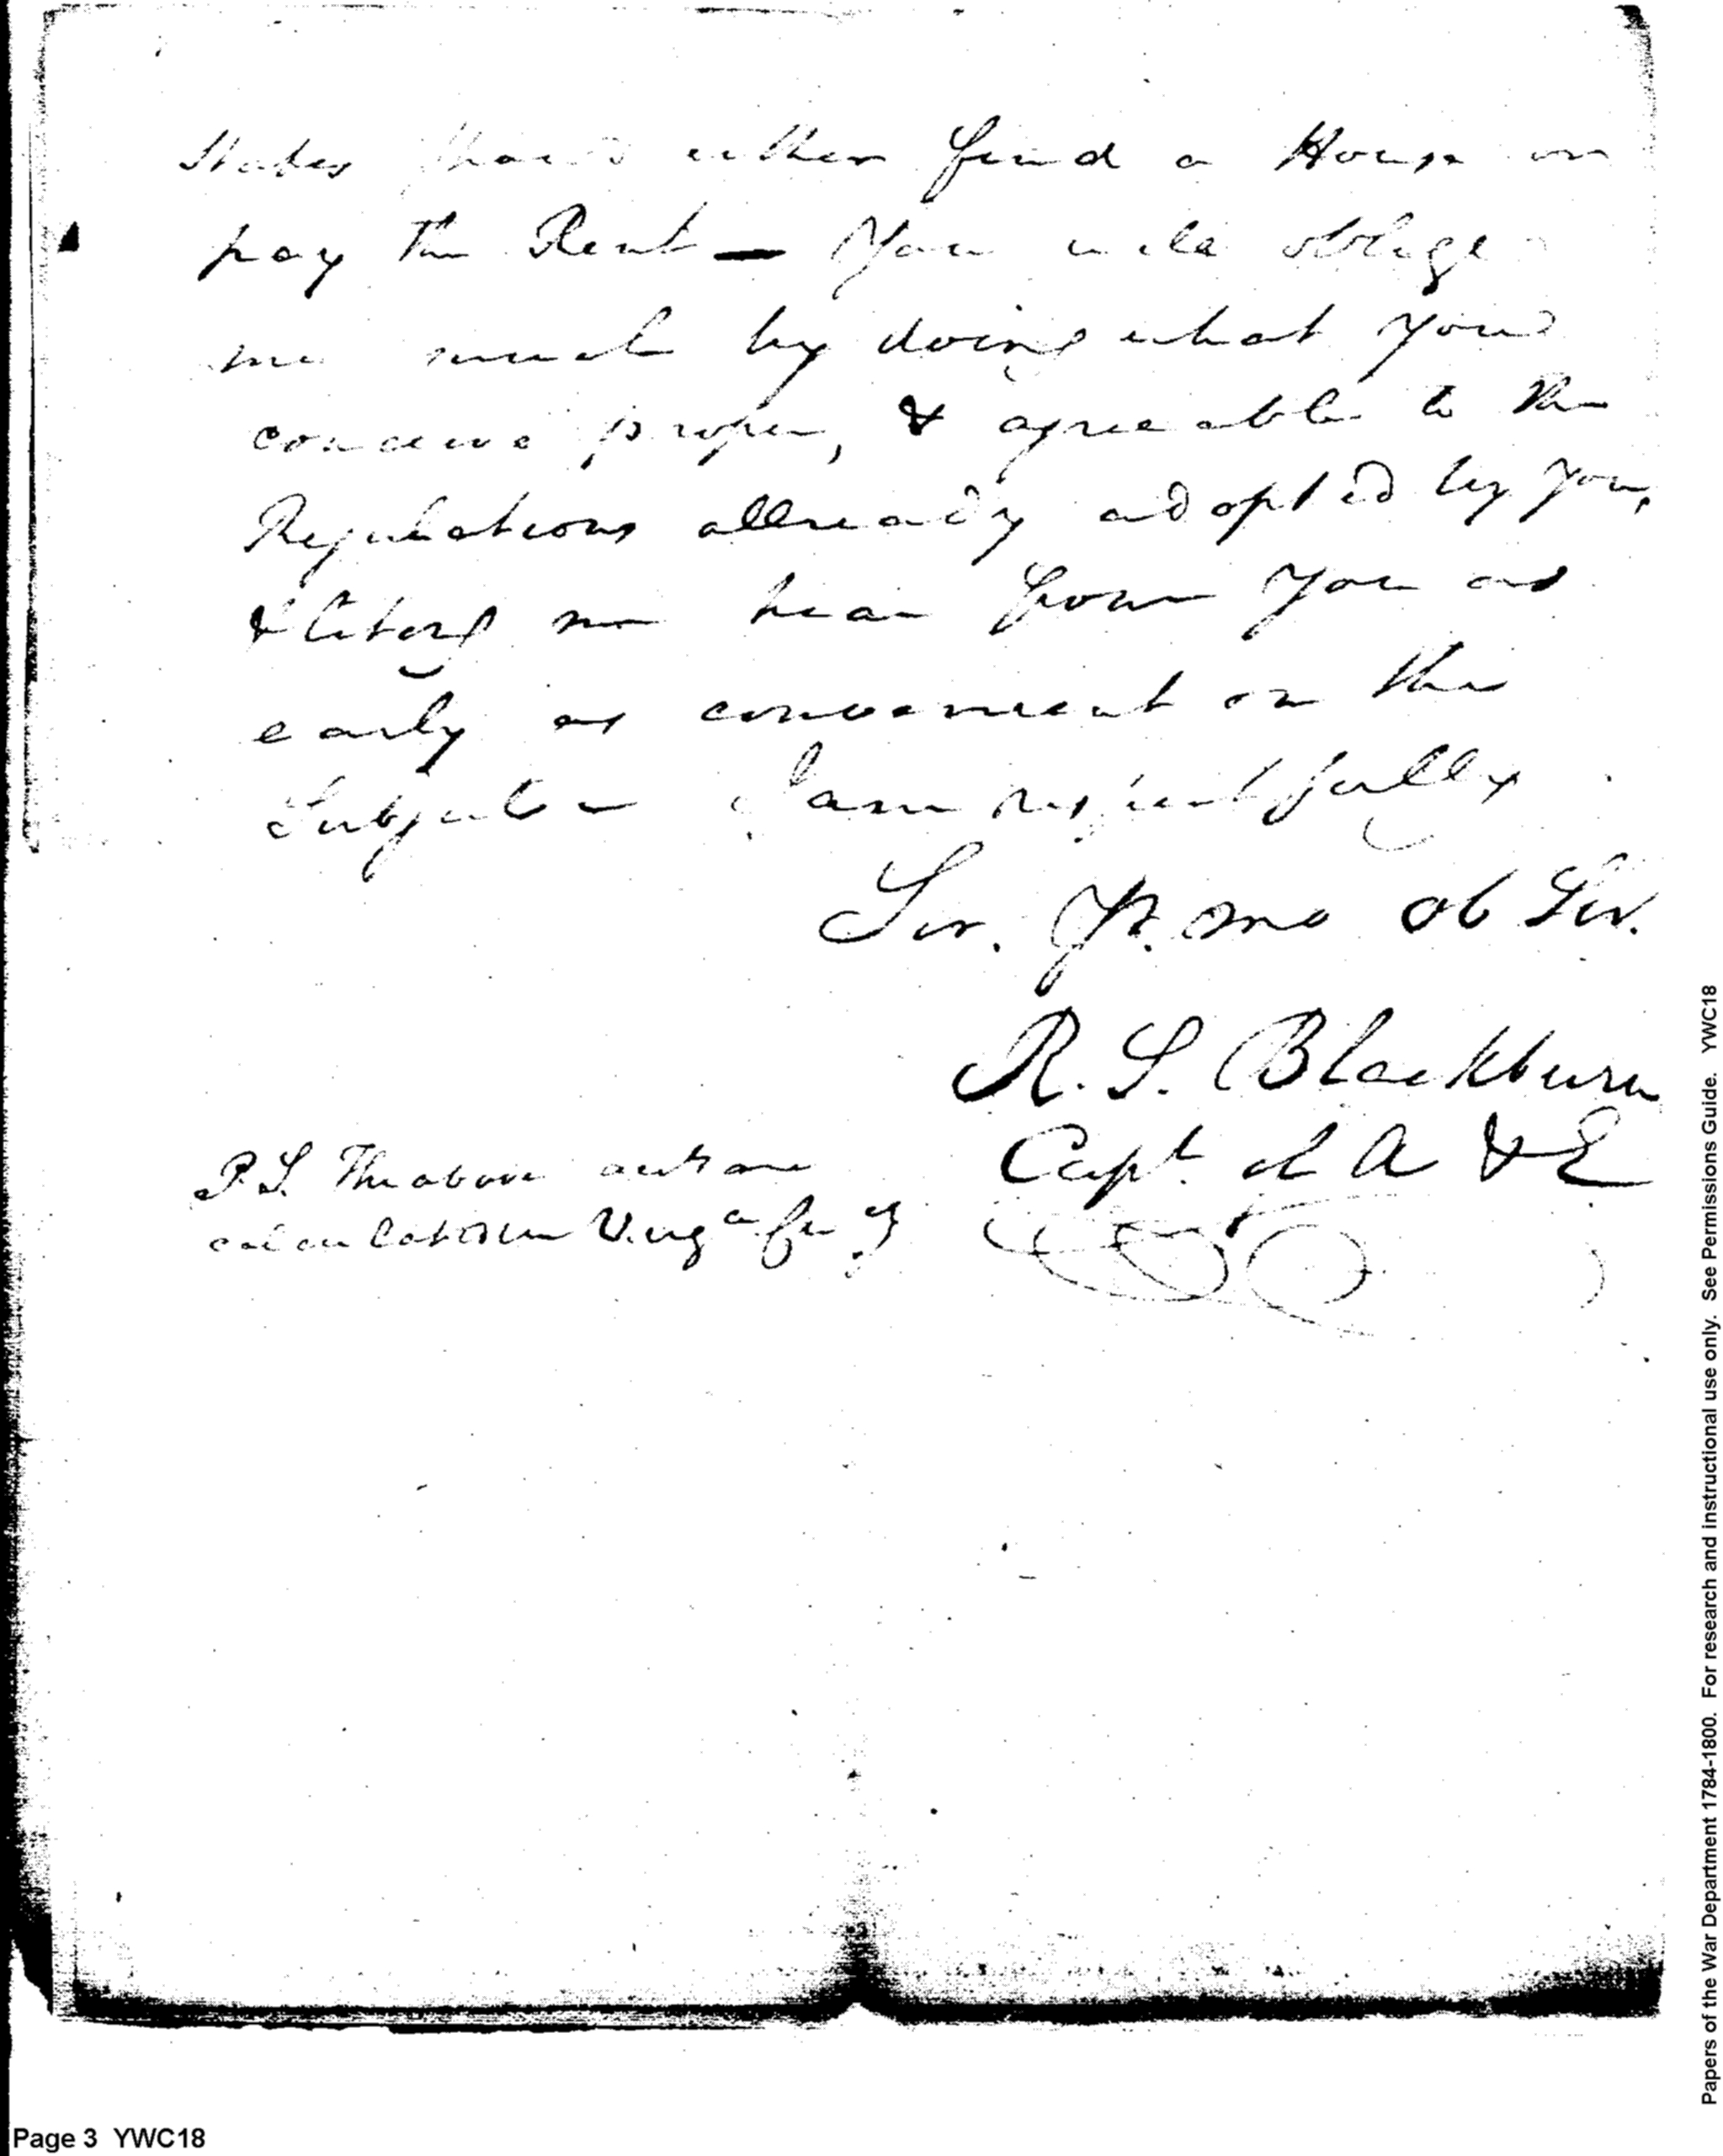 States should either find a House or
pay the Rent — You will oblige
me much by doing what you
conceive proper, & agreeable to the
Regulations allready adopted by you,
& letting me hear from you as
early as convenient on the
Subject — I am respectfully
Sir. Yr. mo ob Ser.
R. S. Blackburn
Capt. of A & E
P.S. The above acts are
calculated in Virga Cuy
Papers of the War Department 1784-1800. For research and instructional use only. See Permissions Guide. YWC18
Page 3 YWC18